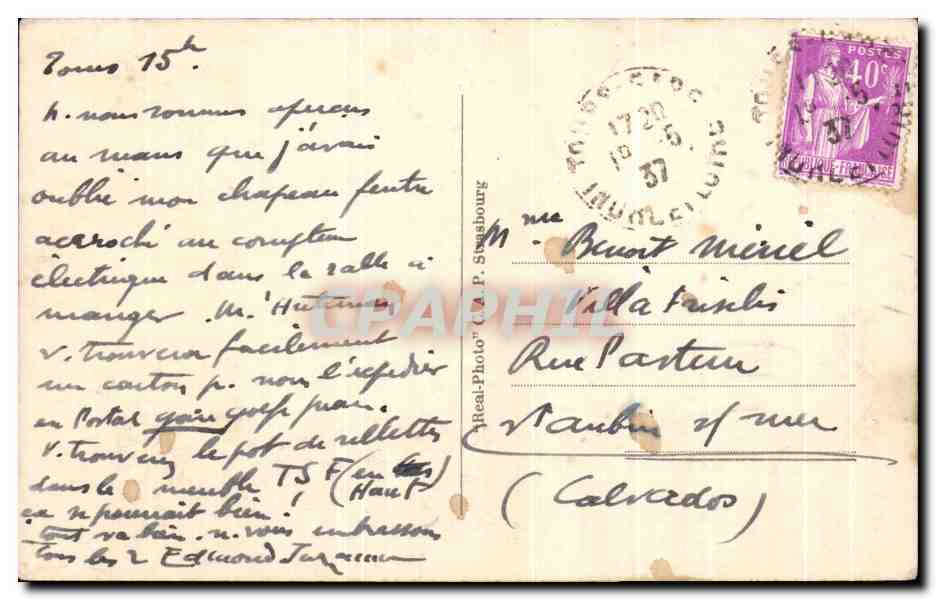 Tours 15h.
N. nous sommes aperçus
au mans que j'avais
oublié mon chapeau feutre
accroché au compteur
électrique dans la salle à
manger. M.
v. trouvera facilement
un carton p. nous l'expédier
en Postal gare golfe juan.
v. trouverez le pot de rillettes
dans le meuble TSF (en
Haut)
ça se pourrait bien!
tout va bien. n. vous embrassons
Tous les 2 Edmond
"Real-Photo" C.A.P. Strasbourg
TOURS-GARE
17 20
5
37
INDRE ET LOIRE
POSTES
40c
REPUBLIQUE FRANCAISE
Mme Benoit
Villa
Rue Pasteur
St Aubin s/ mer
(Calvados)
CPAPHIL